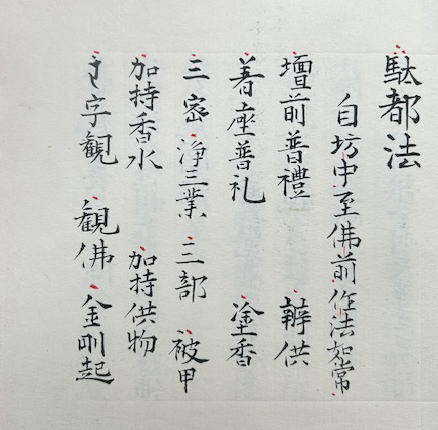 馱都法
自坊中至佛前作法如常
壇前普禮 辨供
着座普礼 塗香
三密 淨三業 三部 被甲
加持香水 加持供物
字觀 觀佛 金剛起